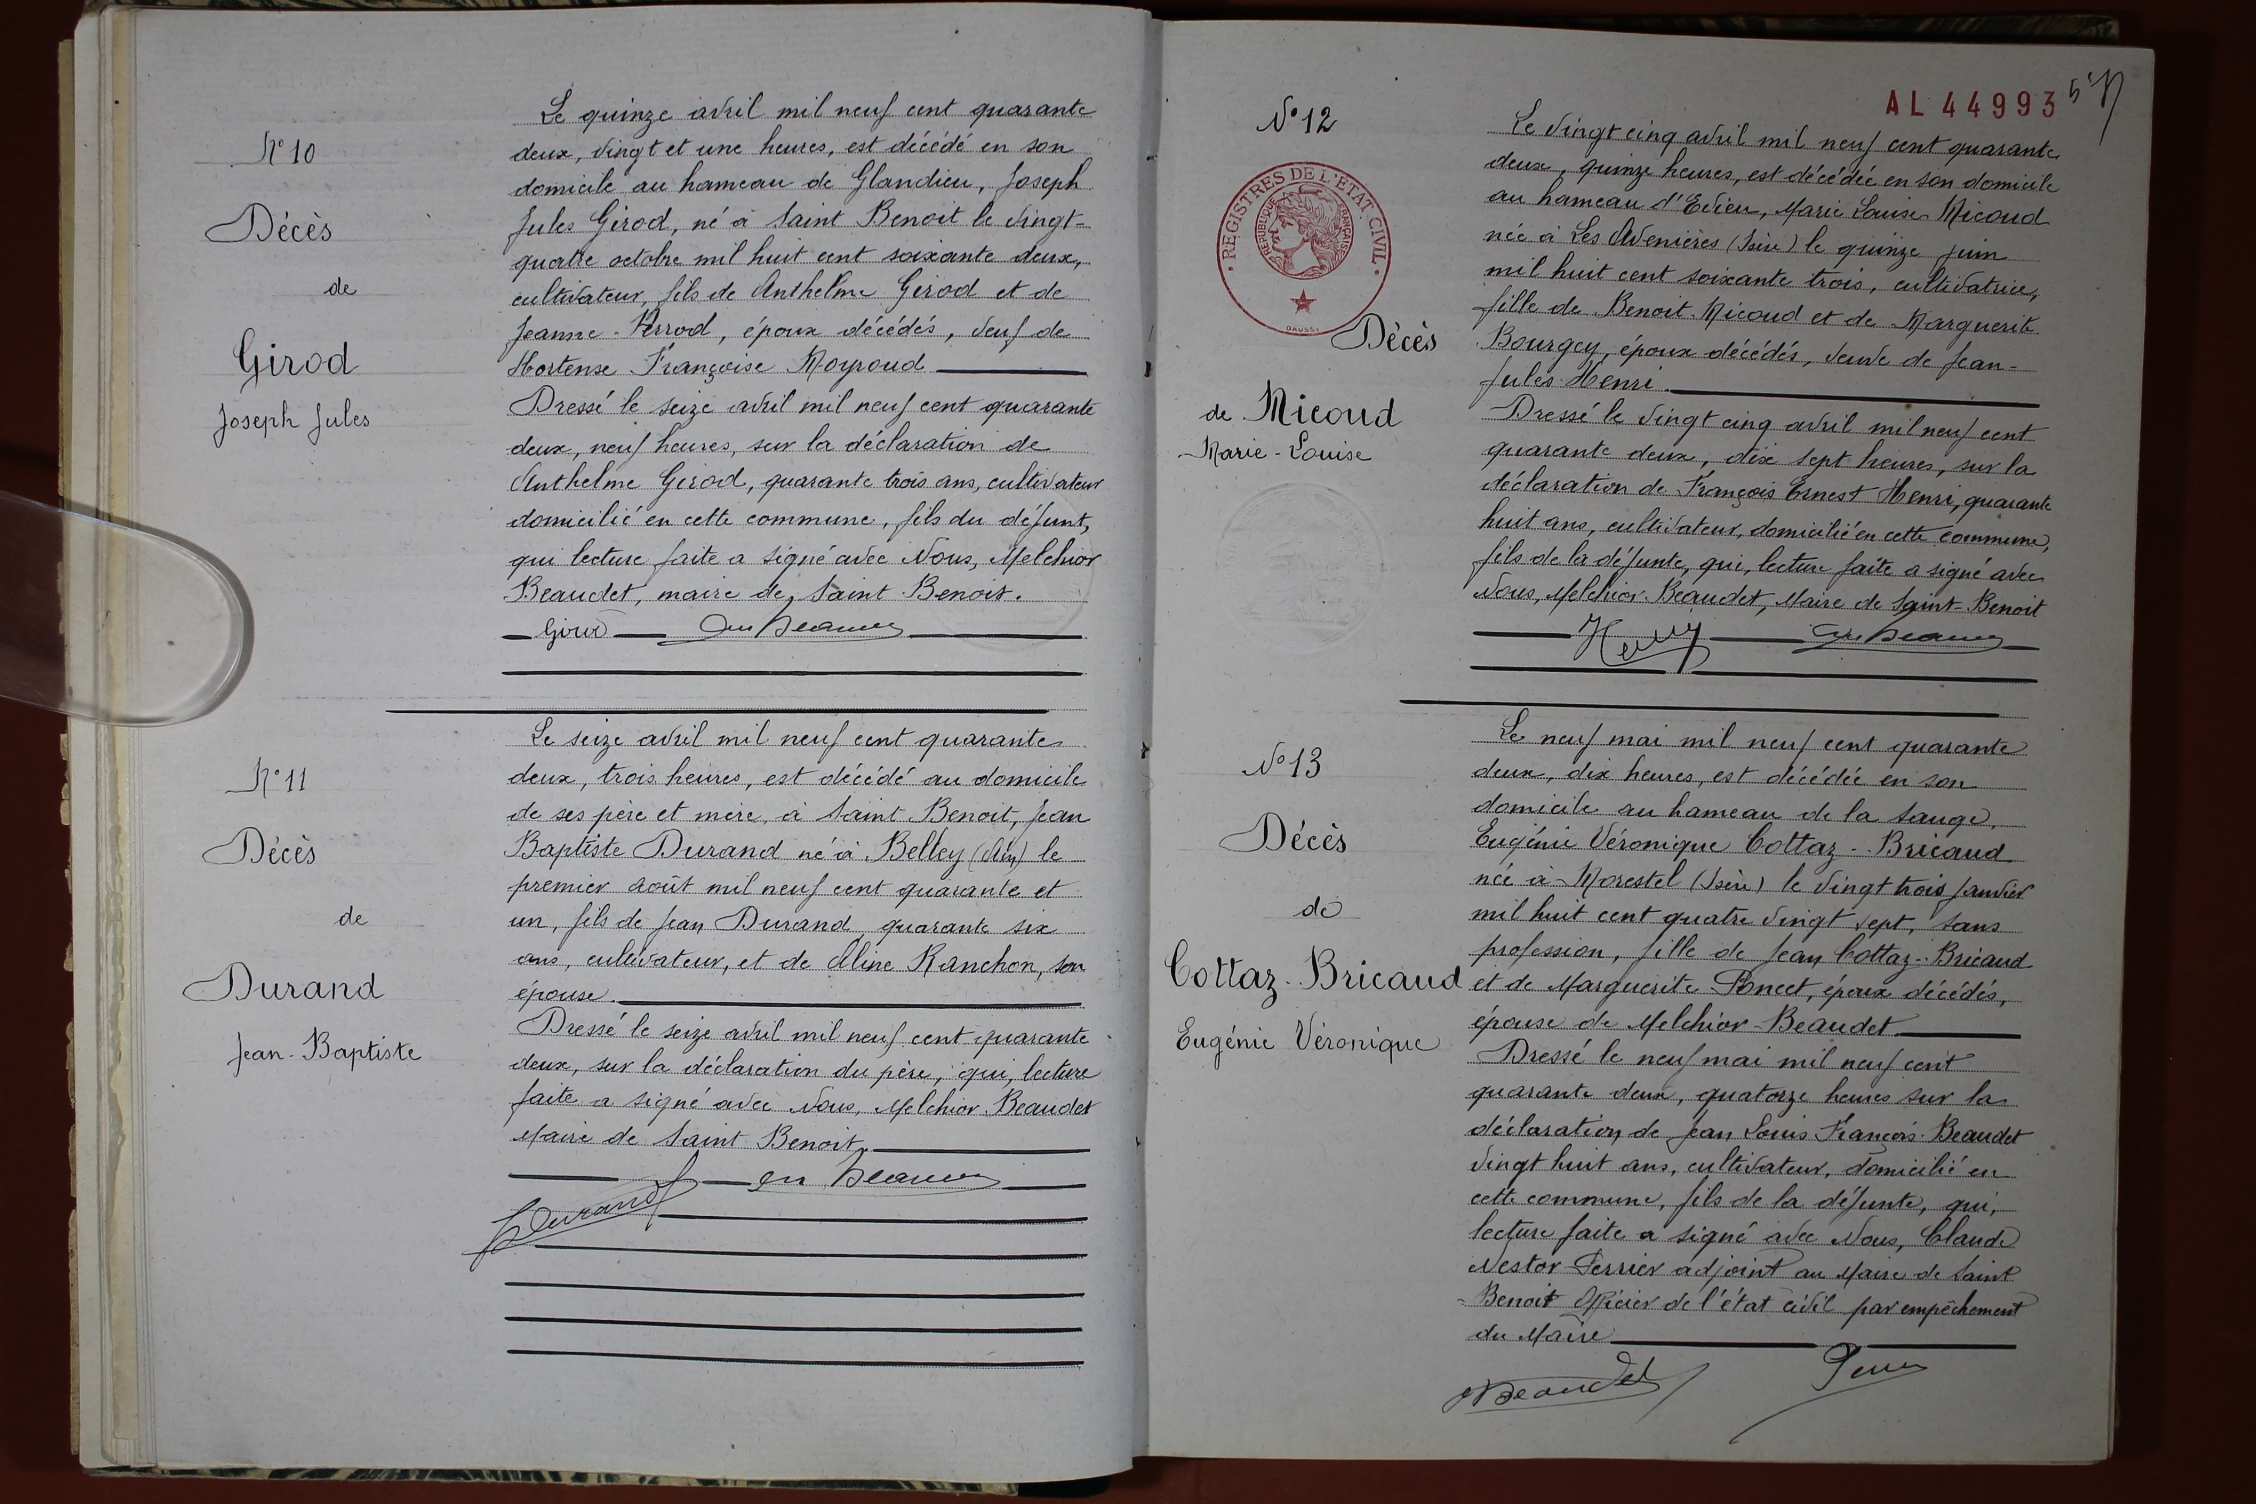 N° 10
Décès
de
Girod
Joseph Jules
Le quinze avril mil neuf cent quarante
deux, vingt et une heures, est décédé en son
domicile au hameau de Glandieu, Joseph
Jules Girod, né à Saint Benoit le vingt-
quatre octobre mil huit cent soixante deux,
cultivateur, fils de Anthelme Girod et de
Jeanne Perrod, époux décédés, veuf de
Hortense Françoise Moyroud
Dressé le seize avril mil neuf cent quarante
deux, neuf heures, sur la déclaration de
Anthelme Girod, quarante trois ans, cultivateur
domicilié en cette commune, fils du défunt,
qui lecture faite a signé avec Nous, Melchior
Beaudet, maire de Saint Benoit.
Girod
N° 11
Décès
de
Durand
Jean-Baptiste
Le seize avril mil neuf cent quarante
deux, trois heures, est décédé au domicile
de ses père et mère, à Saint Benoit, Jean
Baptiste Durand né à Belley (Ain) le
premier août mil neuf cent quarante et
un, fils de Jean Durand quarante six
ans, cultivateur, et de Aline Ranchon, son
épouse.
Dressé le seize avril mil neuf cent quarante
deux, sur la déclaration du père, qui, lecture
faite a signé avec Nous, Melchior Beaudet
Maire de Saint Benoit.
Durand
AL 44993
N° 12
REGISTRES DE L'ÉTAT CIVIL
RÉPUBLIQUE FRANÇAISE
Décès
de Micoud
Marie-Louise
Le vingt cinq avril mil neuf cent quarante
deux, quinze heures, est décédée en son domicile
au hameau d'Evieu, Marie Louise Micoud
née à Les Avenières (Isère) le quinze juin
mil huit cent soixante trois, cultivatrice,
fille de Benoit Micoud et de Marguerite
Bourgey, époux décédés, veuve de Jean-
Jules Henri.
Dressé le vingt cinq avril mil neuf cent
quarante deux, dix sept heures, sur la
déclaration de François Ernest Henri, quarante
huit ans, cultivateur, domicilié en cette commune,
fils de la défunte, qui, lecture faite a signé avec
Nous, Melchior Beaudet, Maire de Saint-Benoit
Henry
N° 13
Décès
de
Cottaz-Bricaud
Eugénie Véronique
Le neuf mai mil neuf cent quarante
deux, dix heures, est décédée en son
domicile au hameau de la Sauge,
Eugénie Véronique Cottaz-Bricaud
née à Morestel (Isère) le vingt trois janvier
mil huit cent quatre vingt sept, sans
profession, fille de Jean Cottaz-Bricaud
et de Marguerite Poncet, époux décédés,
épouse de Melchior Beaudet
Dressé le neuf mai mil neuf cent
quarante deux, quatorze heures sur la
déclaration de Jean Louis François Beaudet
vingt huit ans, cultivateur, domicilié en
cette commune, fils de la défunte, qui,
lecture faite a signé avec Nous, Claude
Nestor Perrier adjoint au Maire de Saint
Benoit Officier de l'état civil par empêchement
du Maire
Beaudet